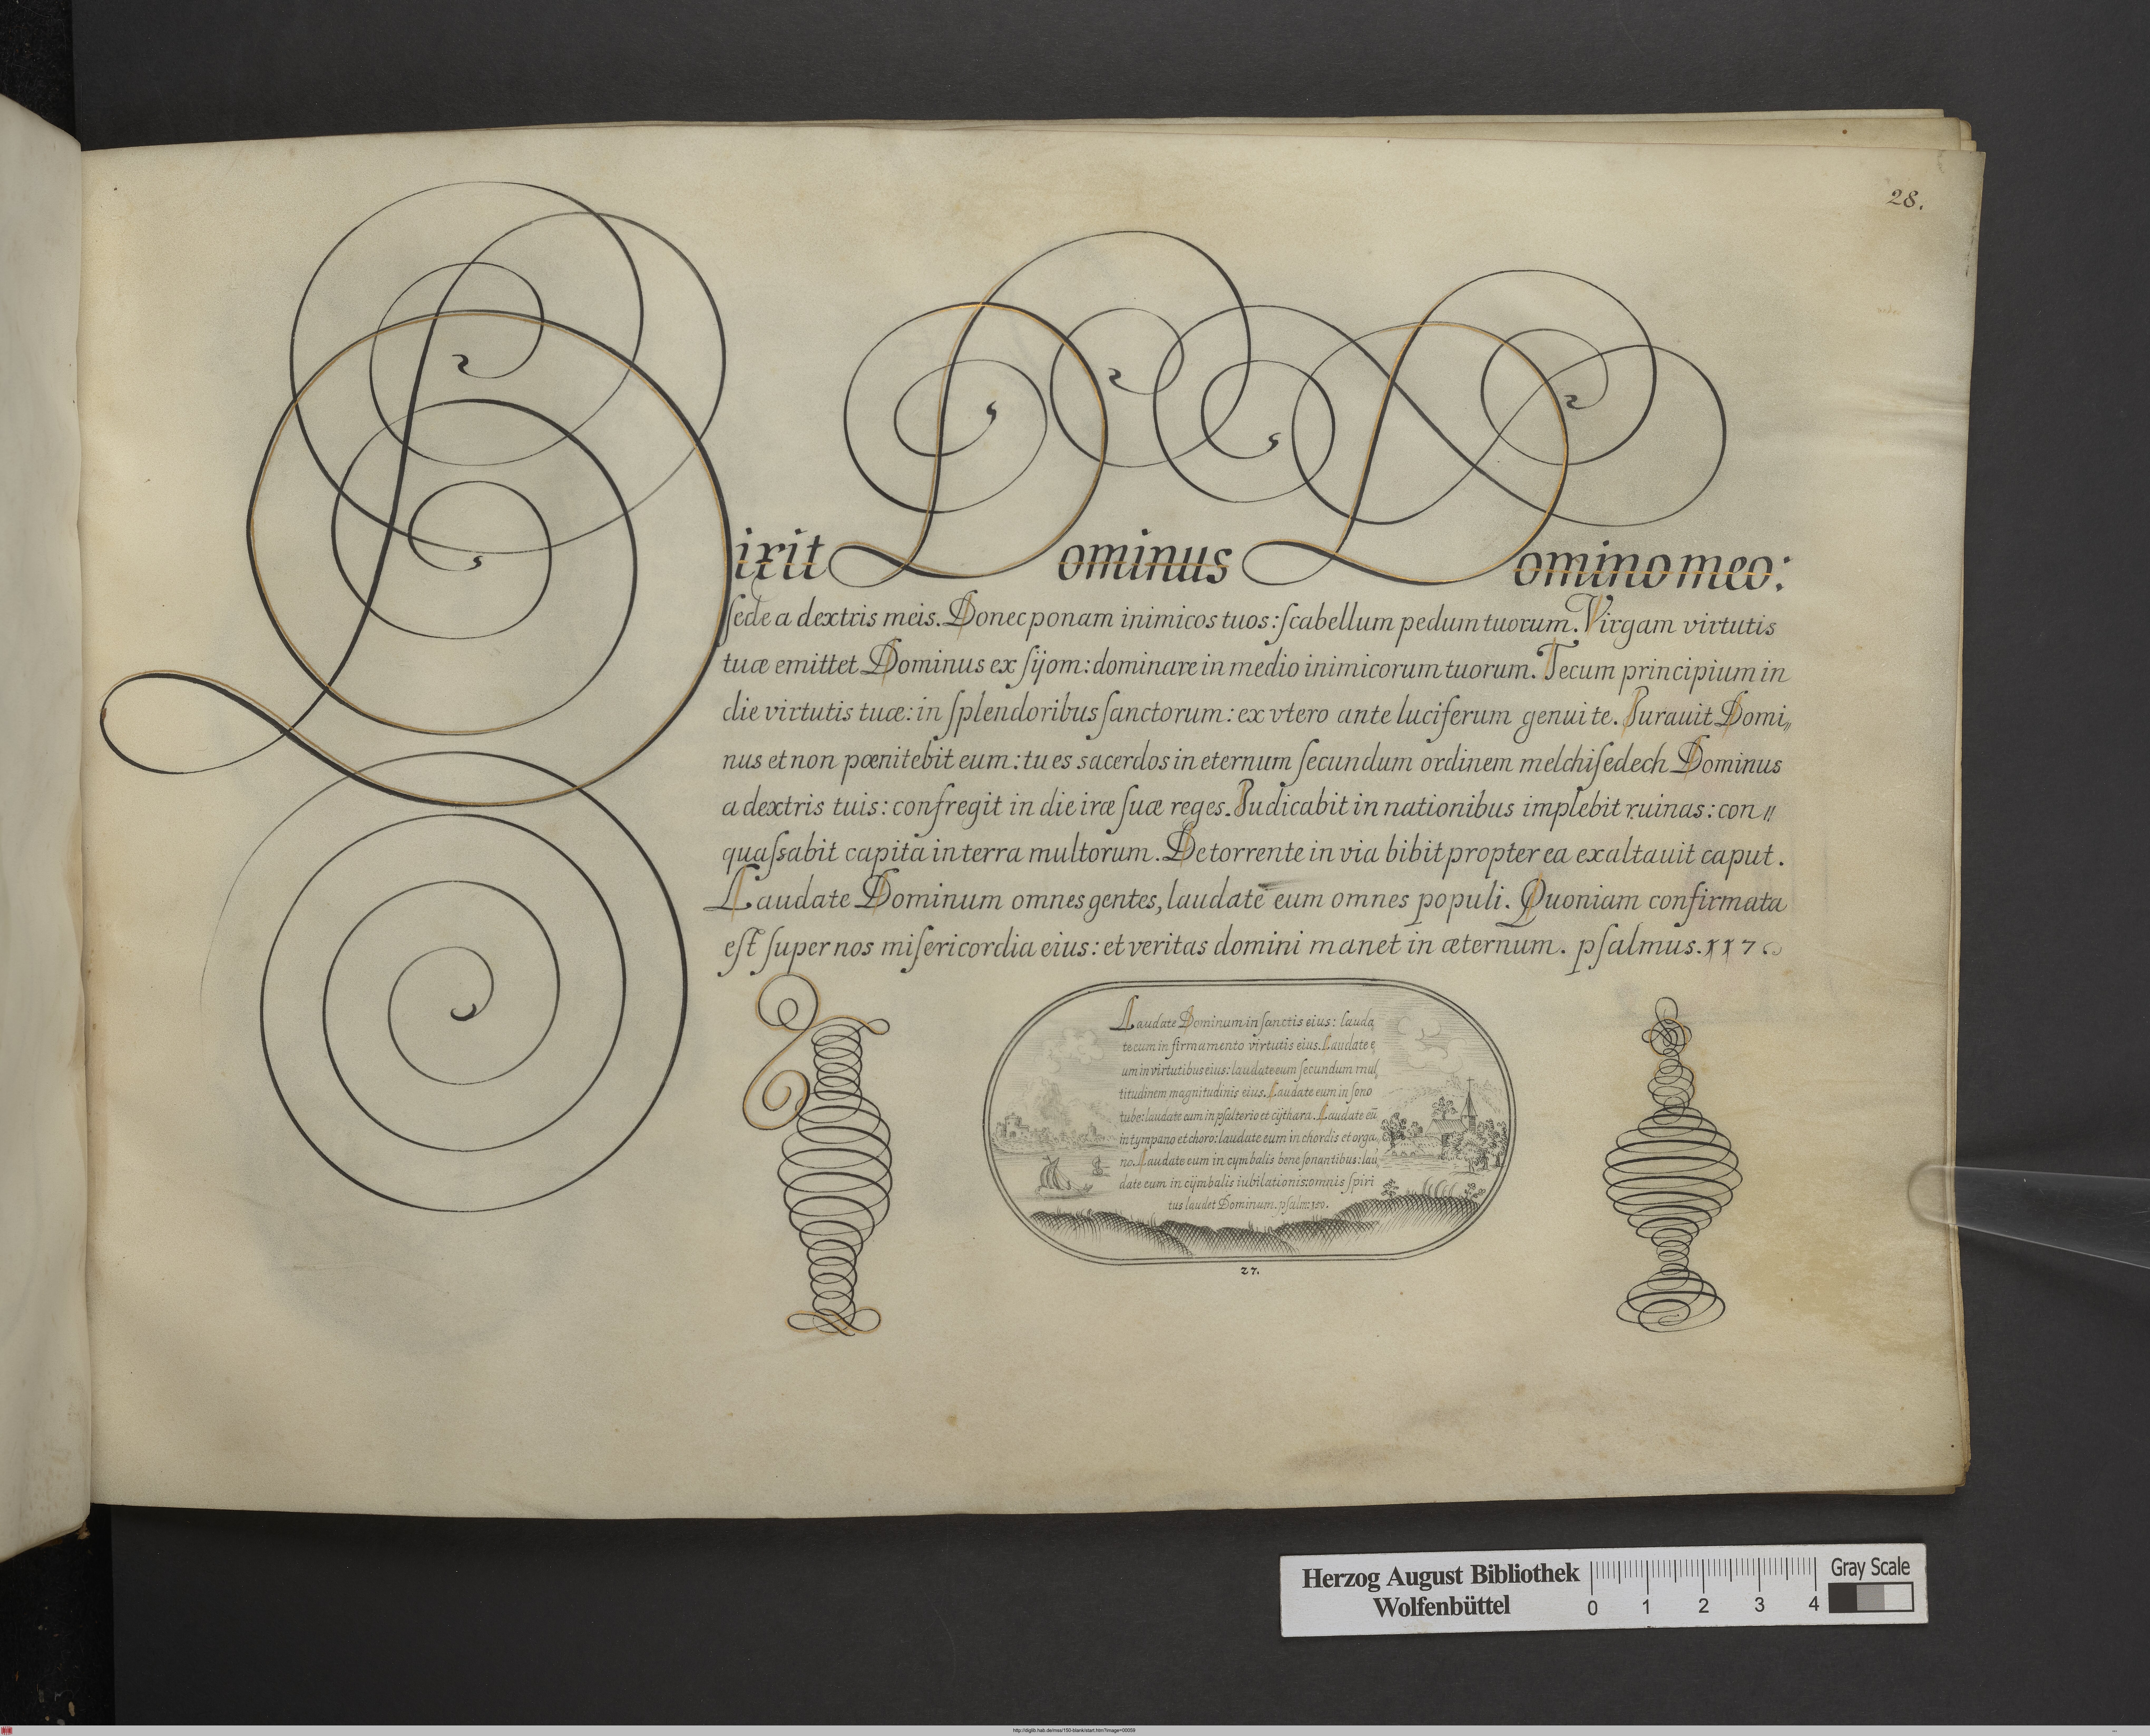 28.
Dixit Dominus Domino meo:
ſede a dextris meis. Donec ponam inimicos tuos: ſcabellum pedum tuorum. Virgam virtutis
tuæ emittet Dominus ex ſijom: dominare in medio inimicorum tuorum. Tecum principium in
die virtutis tuæ: in ſplendoribus ſanctorum: ex vtero ante luciferum genui te. Iurauit Domi„
nus et non pœnitebit eum: tu es sacerdos in eternum ſecundum ordinem melchiſedech Dominus
a dextris tuis: confregit in die iræ ſuæ reges. Iudicabit in nationibus implebit ruinas: con„
quaſsabit capita in terra multorum. De torrente in via bibit propter ea exaltauit caput.
Laudate Dominum omnes gentes, laudate eum omnes populi. Quoniam confirmata
eſt ſuper nos miſericordia eius: et veritas domini manet in æternum. pſalmus. 117
Laudate Dominum in ſanctis eius: lauda,
te eum in firmamento virtutis eius. Laudate e,
um in virtutibus eius: laudate eum ſecundum mul,
titudinem magnitudinis eius. Laudate eum in ſono
tube: laudate eum in pſalterio et cijthara. Laudate eũ
in tympano et choro: laudate eum in chordis et orga,
no. Laudate eum in cymbalis bene ſonantibus: lau,
date eum in cijmbalis iubilationis: omnis ſpiri
tus laudet Dominum. pſalm: 150.
27.
Herzog August Bibliothek
Wolfenbüttel
0 1 2 3 4
Gray Scale
http://diglib.hab.de/mss/150-blank/start.htm?image=00059